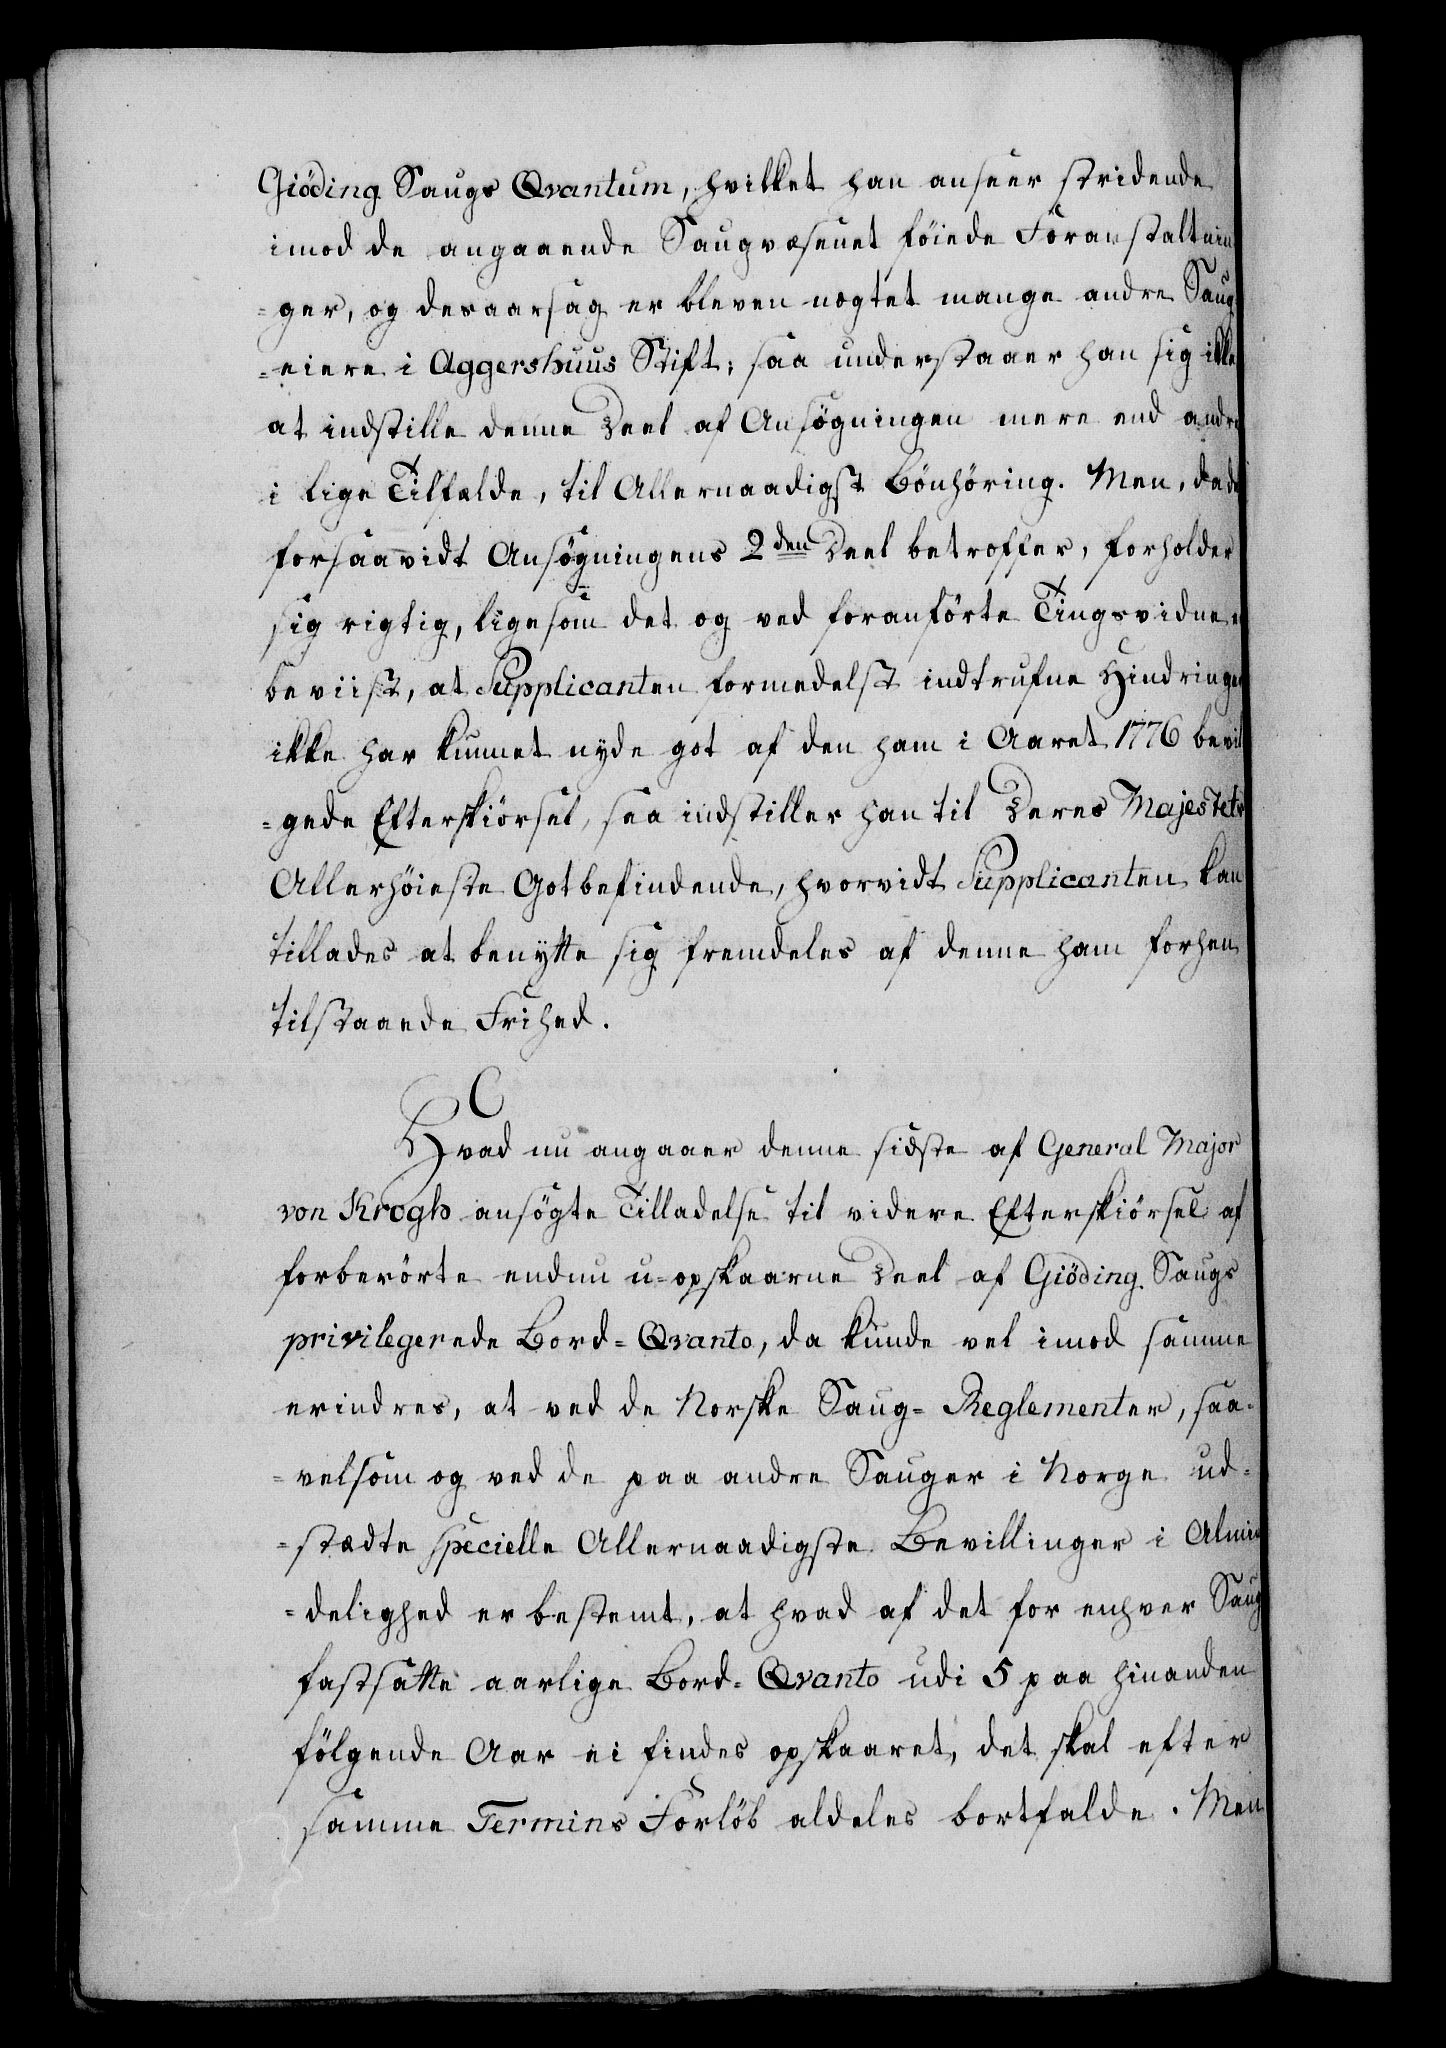 Giöding Saugs Qvantum, hvilket han anseer stridende
imod de angaaende Saugvæsenet föiede Foranstaltnin
=ger, og desaarsag er bleven nægtet mange andre Saug
=eiere i Aggershuus Stift; saa understaaer han sig ikke
at indstille denne Deel af Ansøgningen mere end andre
i lige Tilfælde, til Allernaadigst Bönhöring. Men, da det
forsaavidt Ansøgningens 2den Deel betræffer, forholder
sig rigtig, ligesom det og ved foranförte Tingsvidne er
beviist, at Supplicanten formedelst indtrufne Hindringer
ikke har kunnet nyde got af den ham i Aaret 1776 bevil
=gede Efterskiörsel, saa indstiller han til Deres Majestets
Allerhöieste Gotbefindende, hvorvidt Supplicanten kan
tillades at benytte sig fremdeles af denne ham forhen
tilstaaende Frihed.
Hvad nu angaaer denne sidste af General Major
von Krogh ansøgte Tilladelse til videre Efterskiörsel af
forberörte endnu u-opskaarne Deel af Giöding Saugs
privilegerede Bord=Qvanto, da kunde vel imod samme
erindres, at ved de Norske Saug=Reglementer, saa=
=velsom og ved de paa andre Sauger i Norge ud=
=stædte specielle Allernaadigste Bevillinger i Almin
=delighed er bestemt, at hvad af det for enhver Saug
fastsatte aarlige Bord=Qvanto udi 5 paa hinanden
fölgende Aar ei findes opskaaret, det skal efter
samme Termins Forlöb aldeles bortfalde. Men